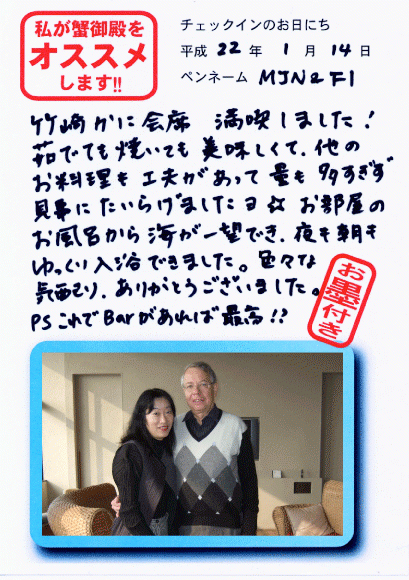 私が蟹御殿を
オススメ
します!!
チェックインのお日にち
平成 22 年 1 月 14 日
ペンネーム MJN2F1
竹崎かに会席 満喫しました!
茹でても焼いても美味しくて、他の
お料理も工夫があって量も多すぎず
見事にたいらげましたヨ☆ お部屋の
お風呂から海が一望でき、夜も朝も
ゆっくり入浴できました。色々な
気配り、ありがとうございました。
お墨付き
PS これでBarがあれば最高!!